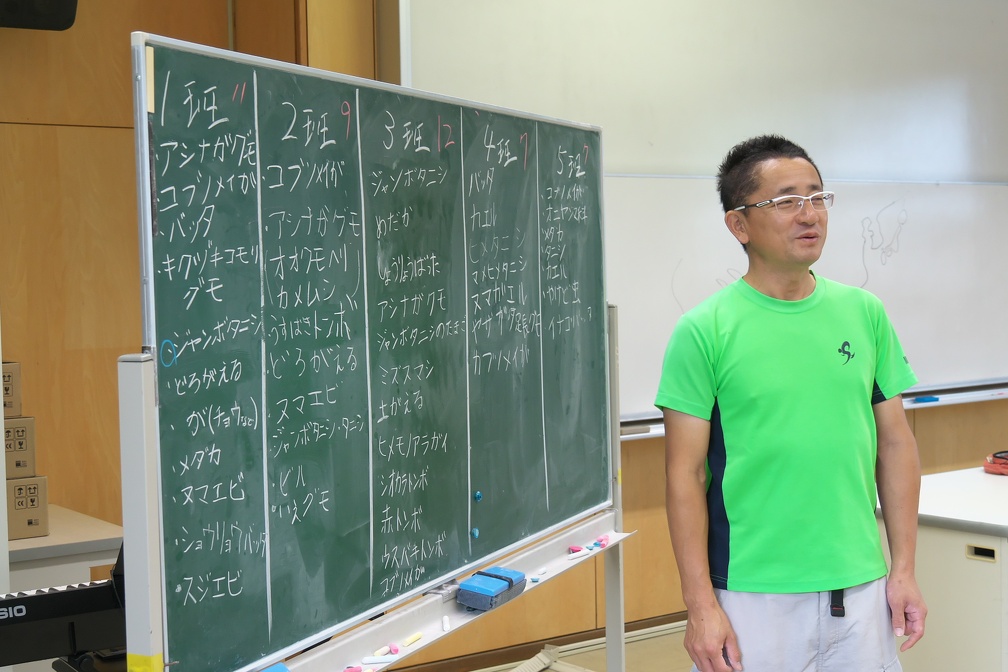 1班 11
アシナガグモ
コブノメイガ
・バッタ
・キクヅキコモリ
グモ
・ジャンボタニシ
・どろがえる
・が(チョウなど)
・メダカ
・ヌマエビ
・ショウリョウバッタ
・スジエビ
2班 9
コブノメイガ
・アシナガグモ
オオクモヘリ
カメムシ
うすばきトンボ
どろがえる
ヌマエビ
ジャンボタニシ・タニシ
・ヒル
・いえグモ
3班 12
ジャンボタニシ
めだか
しょうりょうばった
アシナガクモ
ジャンボタニシのたまご
ミズスマシ
土がえる
ヒメモノアラガイ
シオカラトンボ
赤トンボ
ウスバキトンボ
コブノメイガ
4班 7
バッタ
カエル
ヒメタニシ
マメヒメタニシ
ヌマガエル
コブノメイガ
5班 7
・コブノメイガ
・メダカ
・タニシ
・カエル
・やけど虫
CASIO